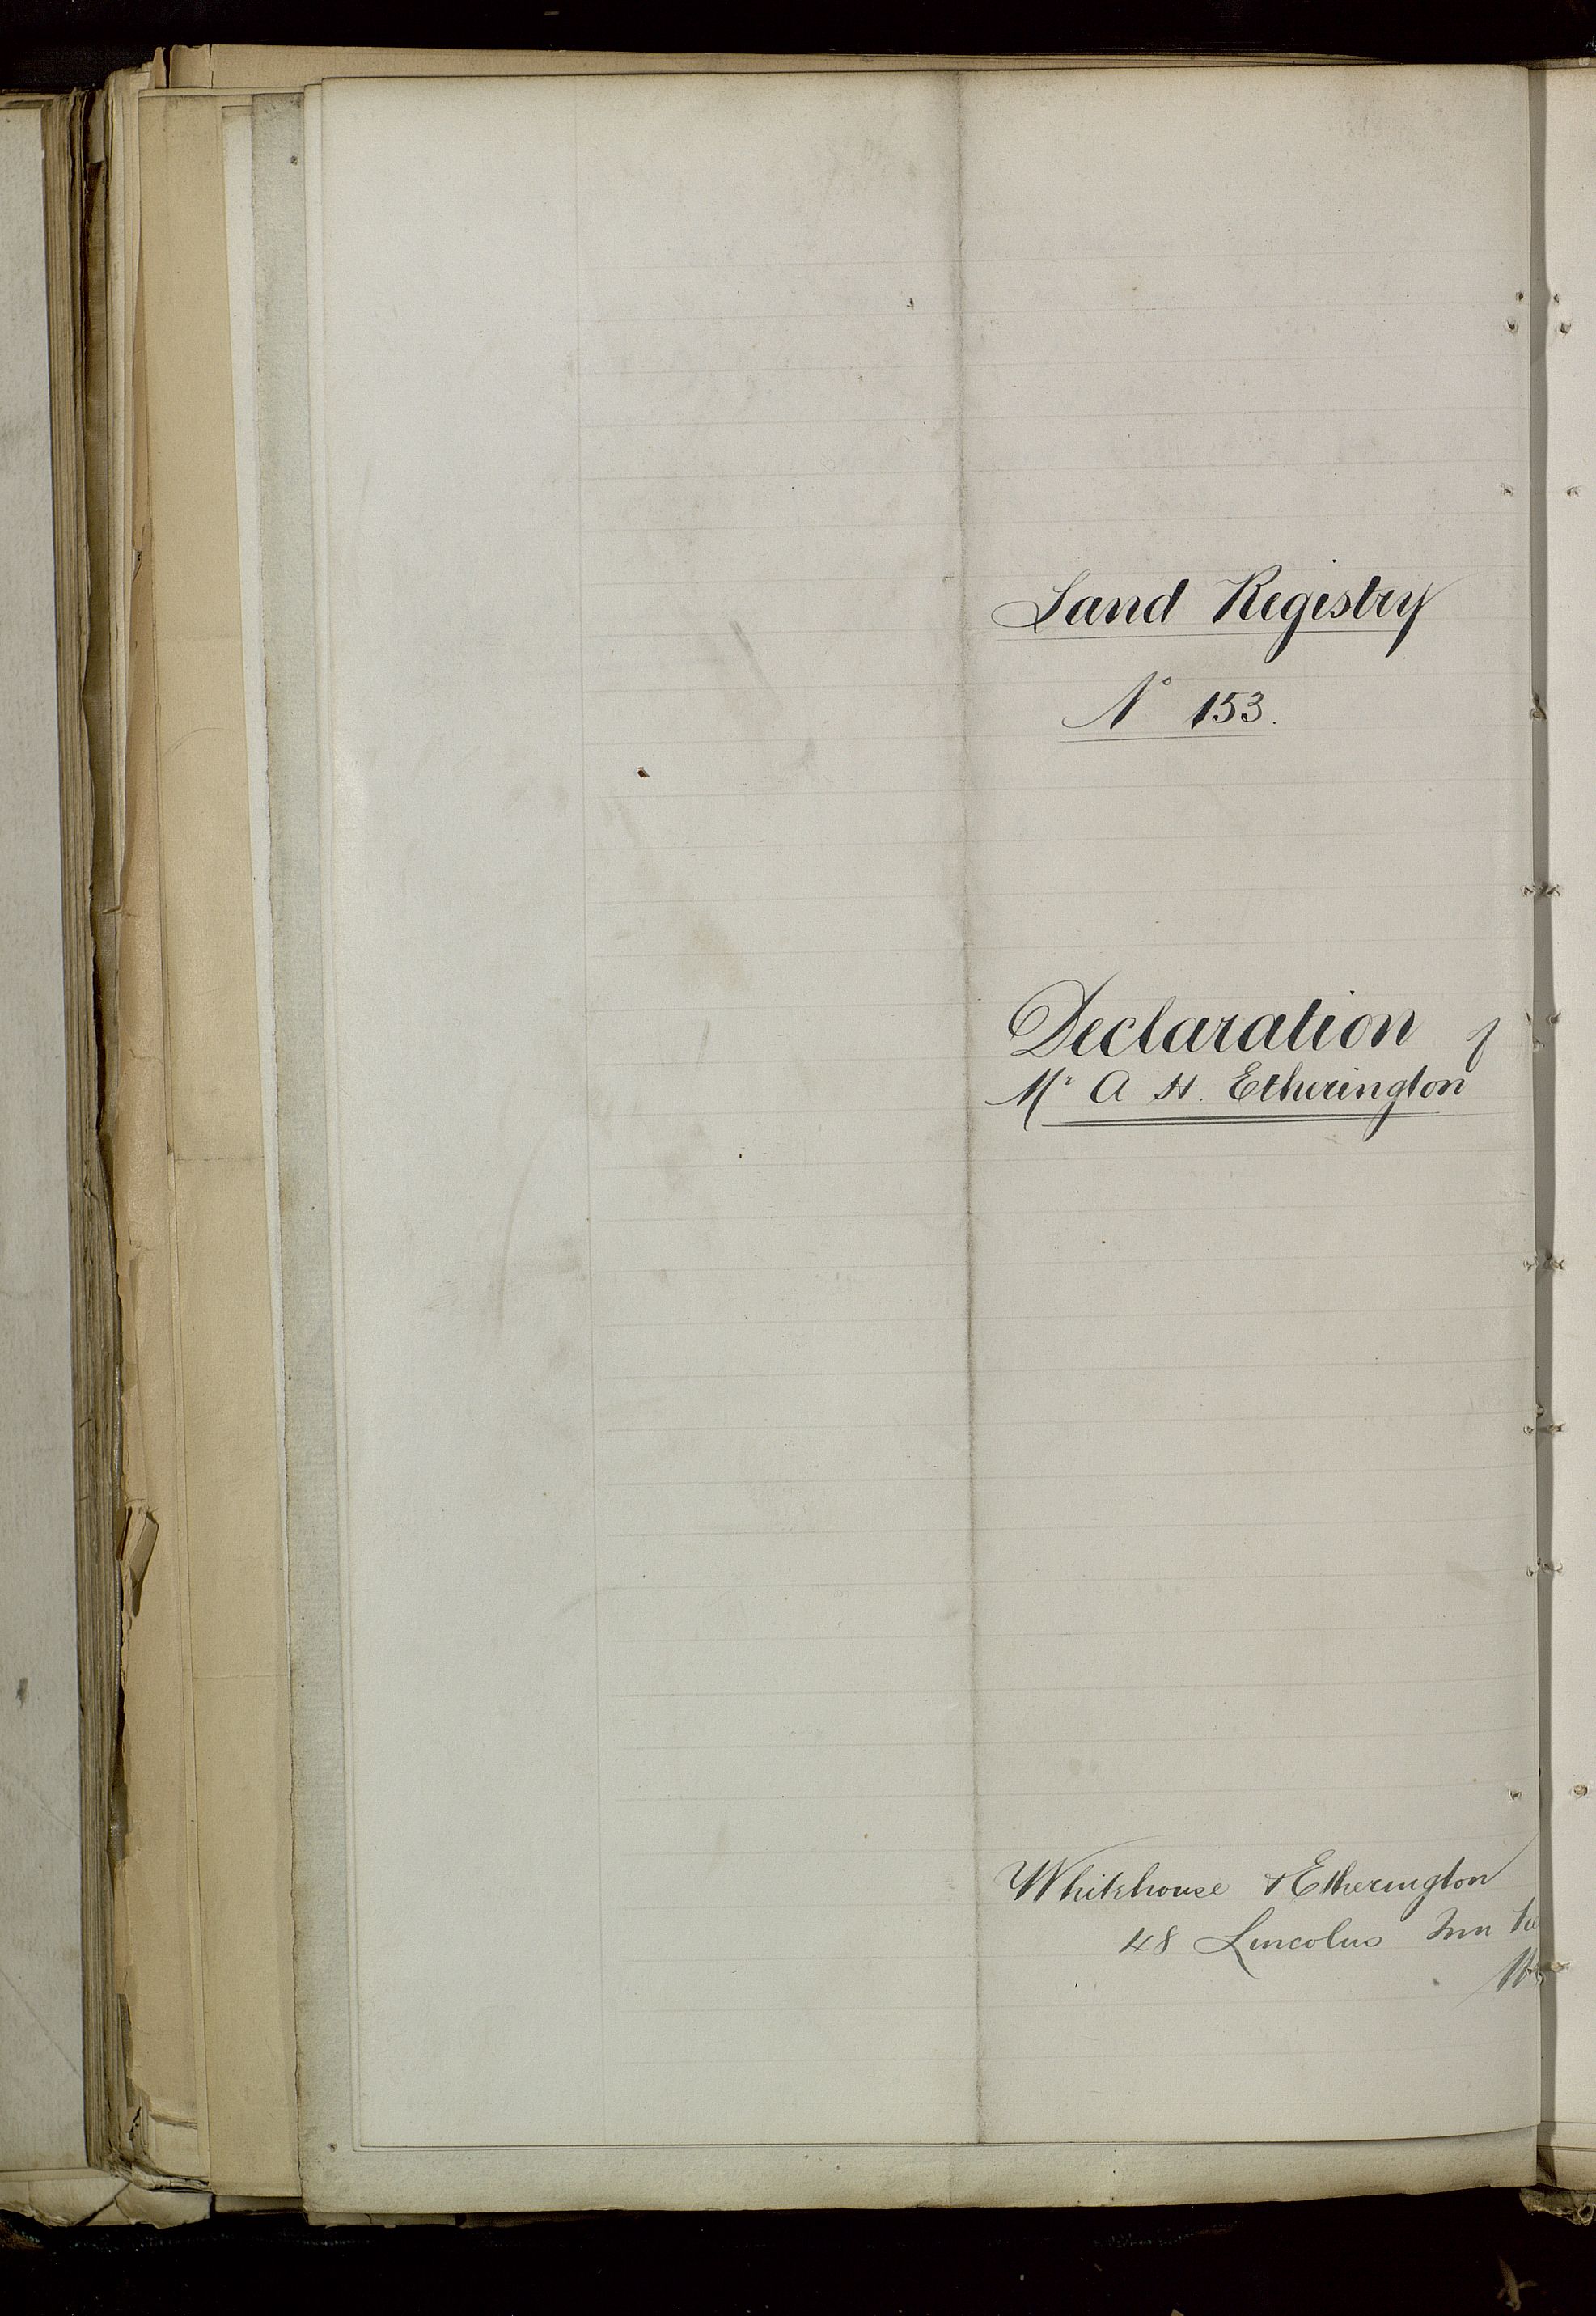 Land Registry
No 153.
Declaration of
Mr A H. Etherington
Whitehouse & Etherington
48 Lincolns Inn